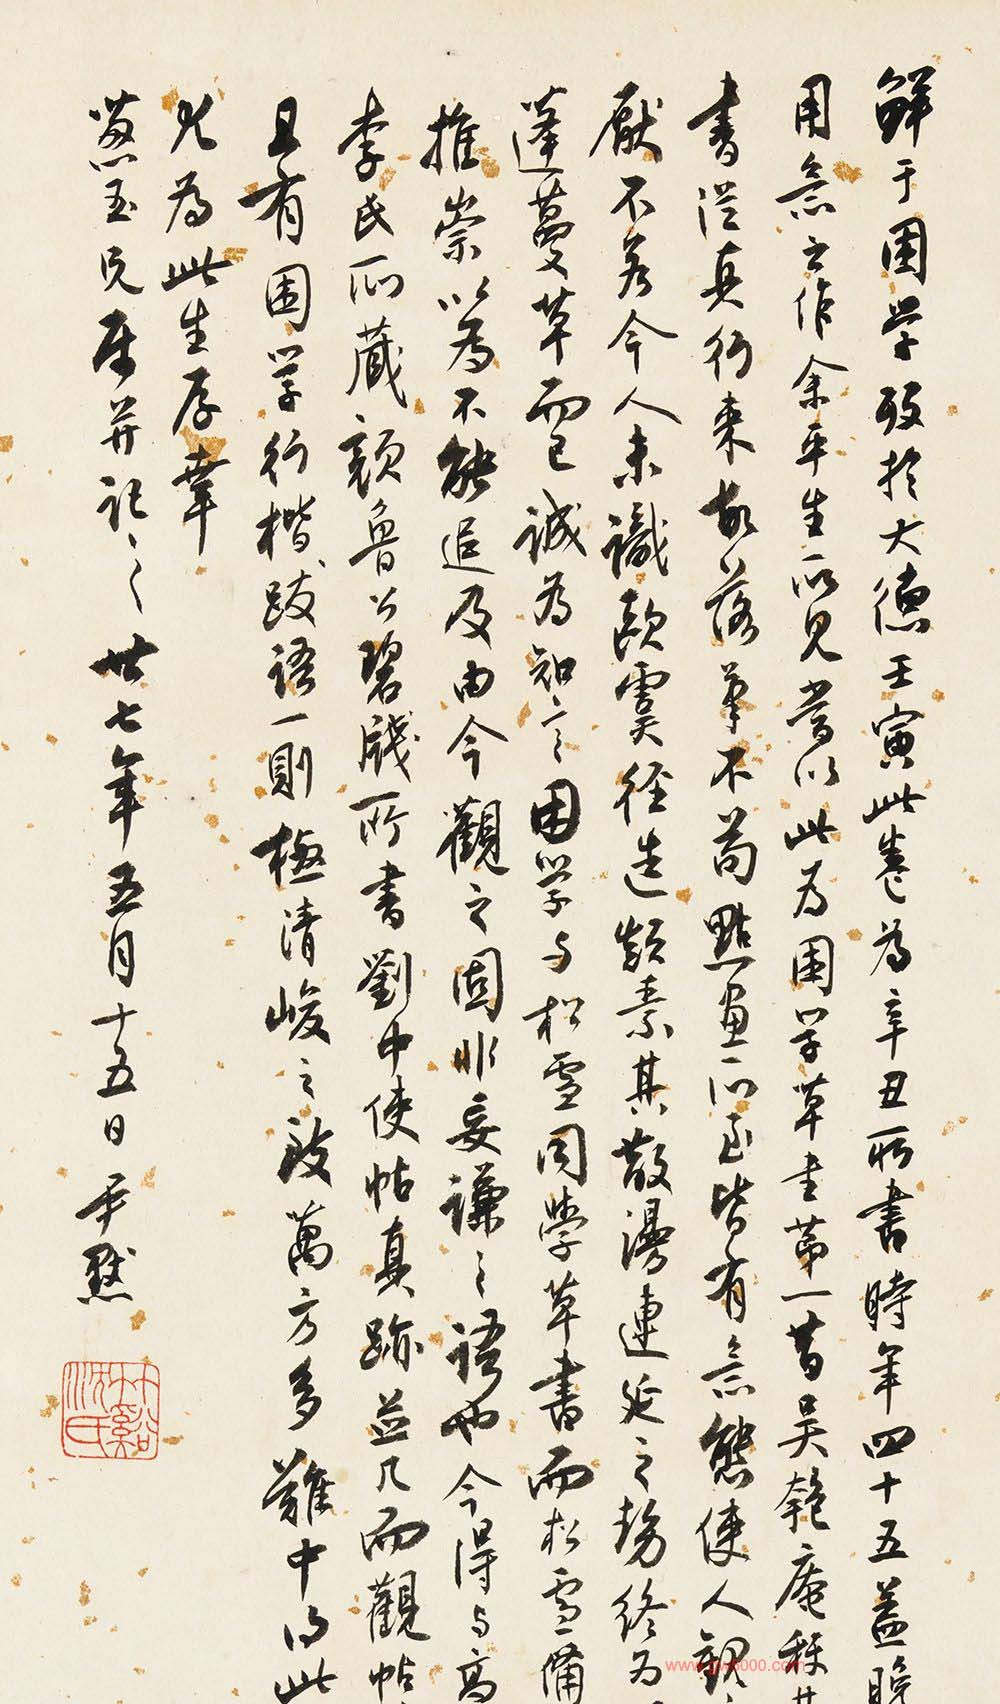 鮮于困學歿於大德壬寅此卷為辛丑所書時年四十五蓋晚
用意之作余平生所見嘗以此為困學草書第一昔吳匏庵稱其
書從真行來故落筆不苟點畫所至皆有意態使人觀之
厭不若今人未識歐虞徑造顛素其散漫連延之勢終為
蓬蔓草而已誠為知言困學與松雪同學草書而松雪備
推崇以為不能追及由今觀之固非妄謙之語也今得與高
李氏所藏顏魯公碧牋所書劉中使帖真跡並几而觀帖
且有困學行楷跋語一則極清峻之致萬方多難中得此
他為此生厚幸
蔥玉兄屬并記之卅七年五月十五日尹默
竹谿沈氏
www.gw8000.com